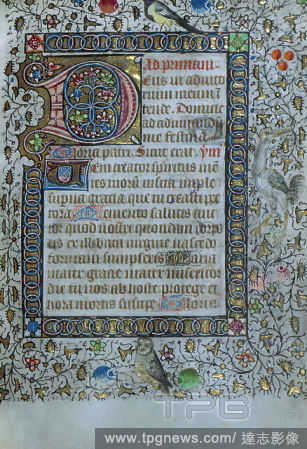 Ad primam
Deus in adiuto
rium meum in
tende. Domine
ad adiuvandum
me festina
Gloria patri. Sicut erat. ymn
Veni creator spiritus me
tes tuorum visita imple
superna gratia que tu creasti pec
tora. Memento salutis auc
tor quod nostri quondam corpo
ris ex illibata virgine nascendo
formam sumpseris. Maria
mater gracie mater misericor
die tu nos ab hoste protege et
hora mortis suscipe. Gloria
TPG
www.tpgnews.com/ 達志影像